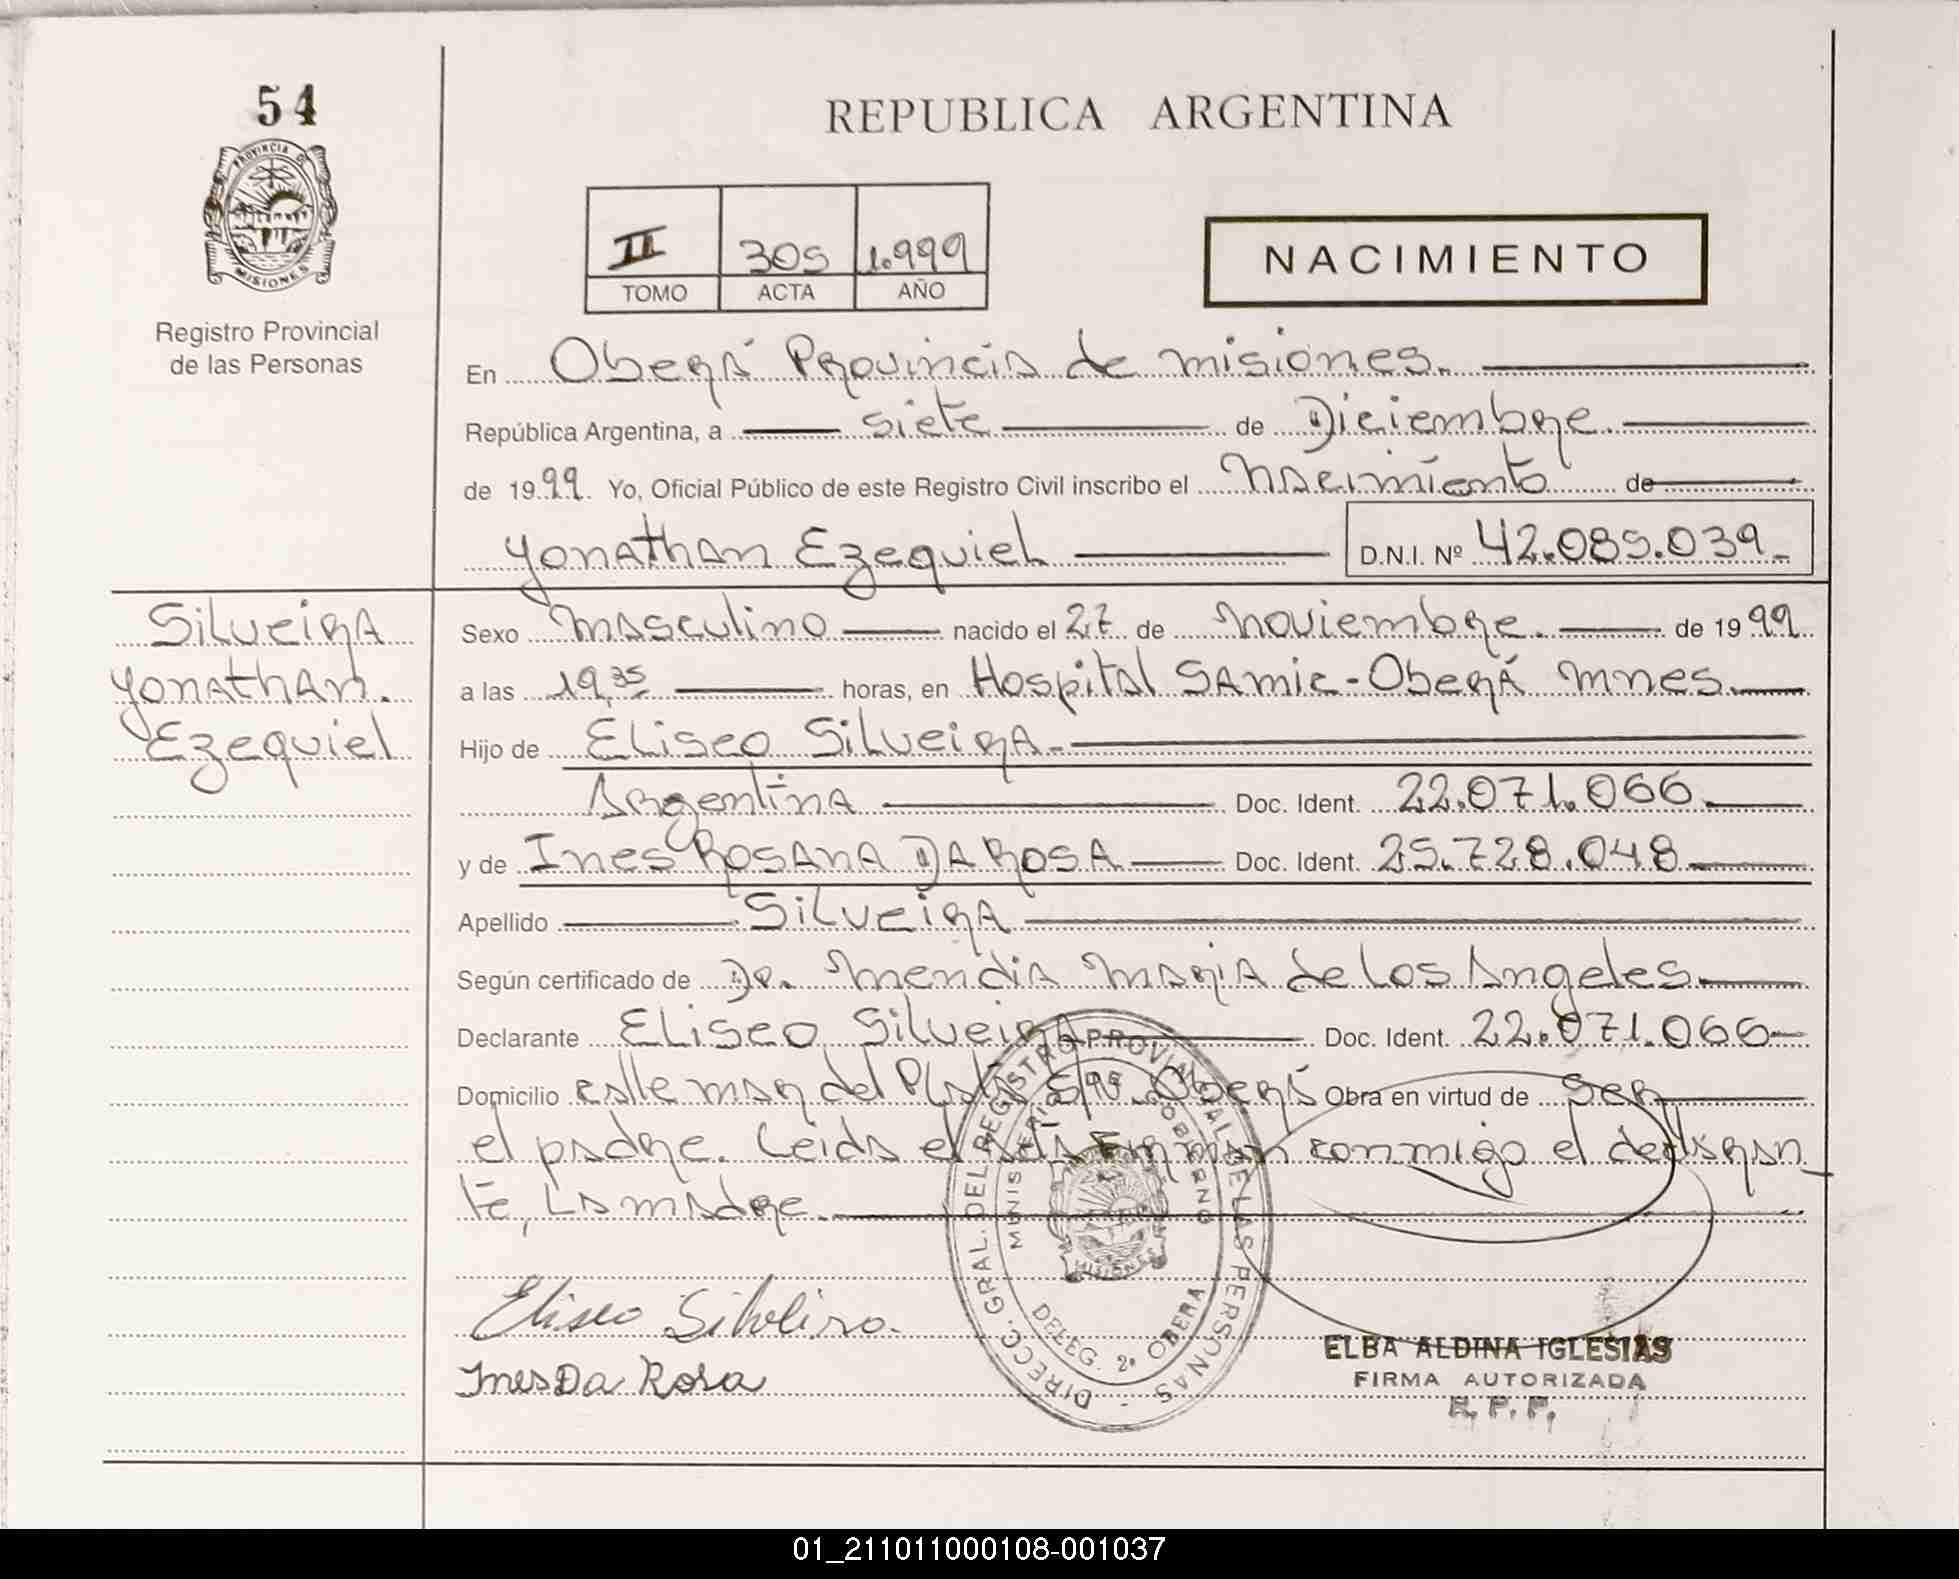 54
REPUBLICA ARGENTINA
PROVINCIA DE
MISIONES
Registro Provincial
de las Personas
II 305 1.999
TOMO ACTA AÑO
NACIMIENTO
En Oberá Provincia de misiones.
República Argentina, a siete de Diciembre
de 1999. Yo, Oficial Público de este Registro Civil inscribo el Nacimiento de
Yonathan Ezequiel D.N.I. Nº 42.085.039.
Silveira
Yonathan.
Ezequiel
Sexo masculino nacido el 27 de noviembre. de 1999
a las 19,35 horas, en Hospital SAmic - Oberá mnes.
Hijo de Eliseo Silveira.
Argentina Doc. Ident. 22.071.066
y de Ines Rosana DA ROSA Doc. Ident. 25.728.048
Apellido Silveira
Según certificado de Dr. Mendia Maria de Los Angeles
Declarante Eliseo Silveira Doc. Ident. 22.071.066
Domicilio calle mar del Plata S/N. Oberá Obra en virtud de ser
el padre. Leida el acta Firman conmigo el declaran
te, La madre.
DIRECC. GRAL. DEL REGISTRO PROVINCIAL DE LAS PERSONAS
MINISTERIO DE GOBIERNO
MISIONES
DELEG. 2ª OBERA
Eliseo Silveira.
Ines Da Rosa
ELBA ALDINA IGLESIAS
FIRMA AUTORIZADA
R. P. P.
01_211011000108-001037